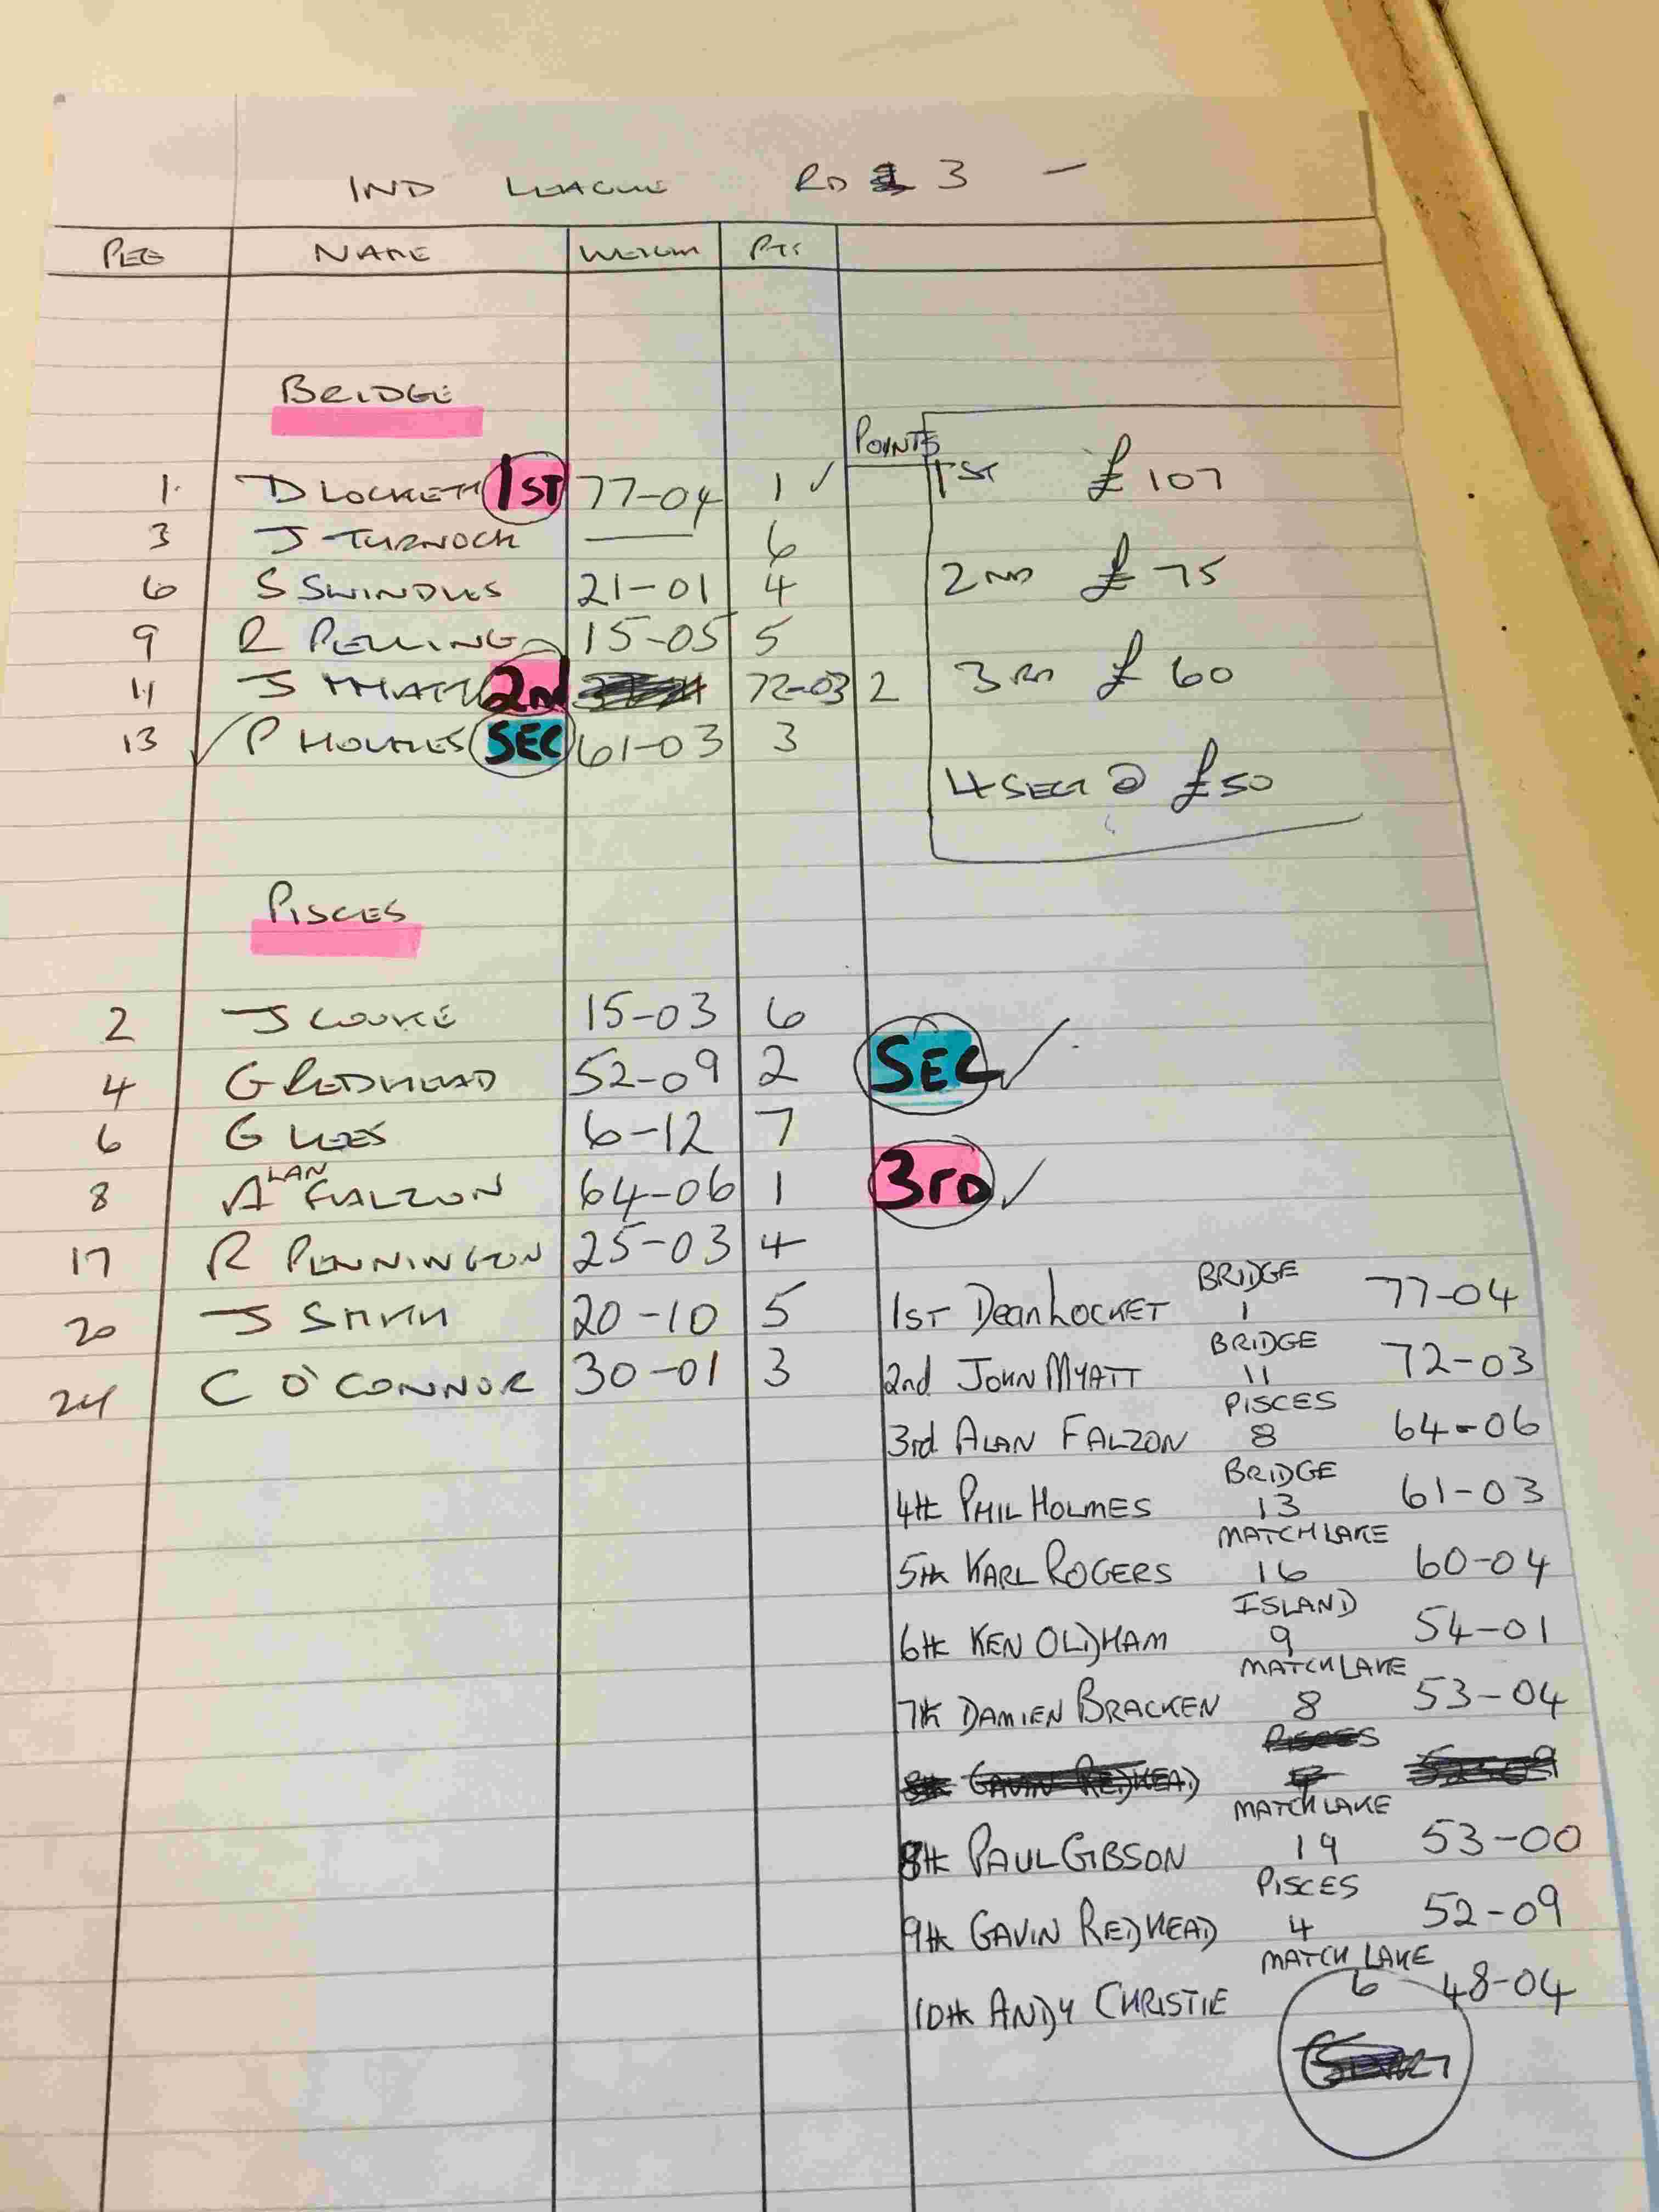 IND LEAGUE RD 3 -
PEG NAME WEIGHT PTS
BRIDGE
POINTS
1 D LOCKETT 1ST 77-04 1 ✓
1ST £107
3 J TURNOCK — 6
6 S SWINDLES 21-01 4
2ND £75
9 R PELLING 15-05 5
11 J MYATT 2nd 72-03 2
3RD £60
13 ✓ P HOLMES SEC 61-03 3
4 SECT @ £50
PISCES
2 J COOKE 15-03 6
4 G REDHEAD 52-09 2 SEC ✓
6 G LEES 6-12 7
8 ALAN FALZON 64-06 1 3RD ✓
17 R PENNINGTON 25-03 4
20 J SMITH 20-10 5
24 C O'CONNOR 30-01 3
1ST Dean LOCKET BRIDGE 1 77-04
2nd JOHN MYATT BRIDGE 11 72-03
3rd ALAN FALZON PISCES 8 64-06
4th PHIL HOLMES BRIDGE 13 61-03
5th KARL ROGERS MATCH LAKE 16 60-04
6th KEN OLDHAM ISLAND 9 54-01
7th DAMIEN BRACKEN MATCH LAKE 8 53-04
8th GAVIN REDHEAD PISCES 4 52-09
8th PAUL GIBSON MATCH LAKE 19 53-00
9th GAVIN REDHEAD PISCES 4 52-09
10th ANDY CHRISTIE MATCH LAKE 6 48-04